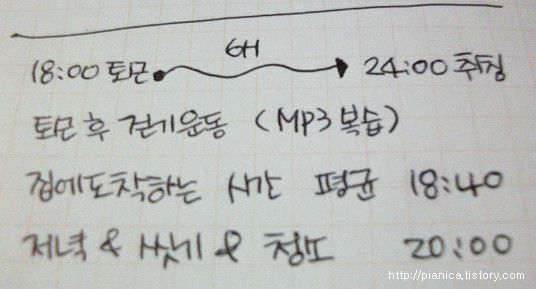 6H
18:00 퇴근 24:00 취침
퇴근 후 걷기운동 (MP3 복습)
집에도착하는 시간 평균 18:40
저녁 & 씻기 & 청소 20:00
http://pianica.tistory.com